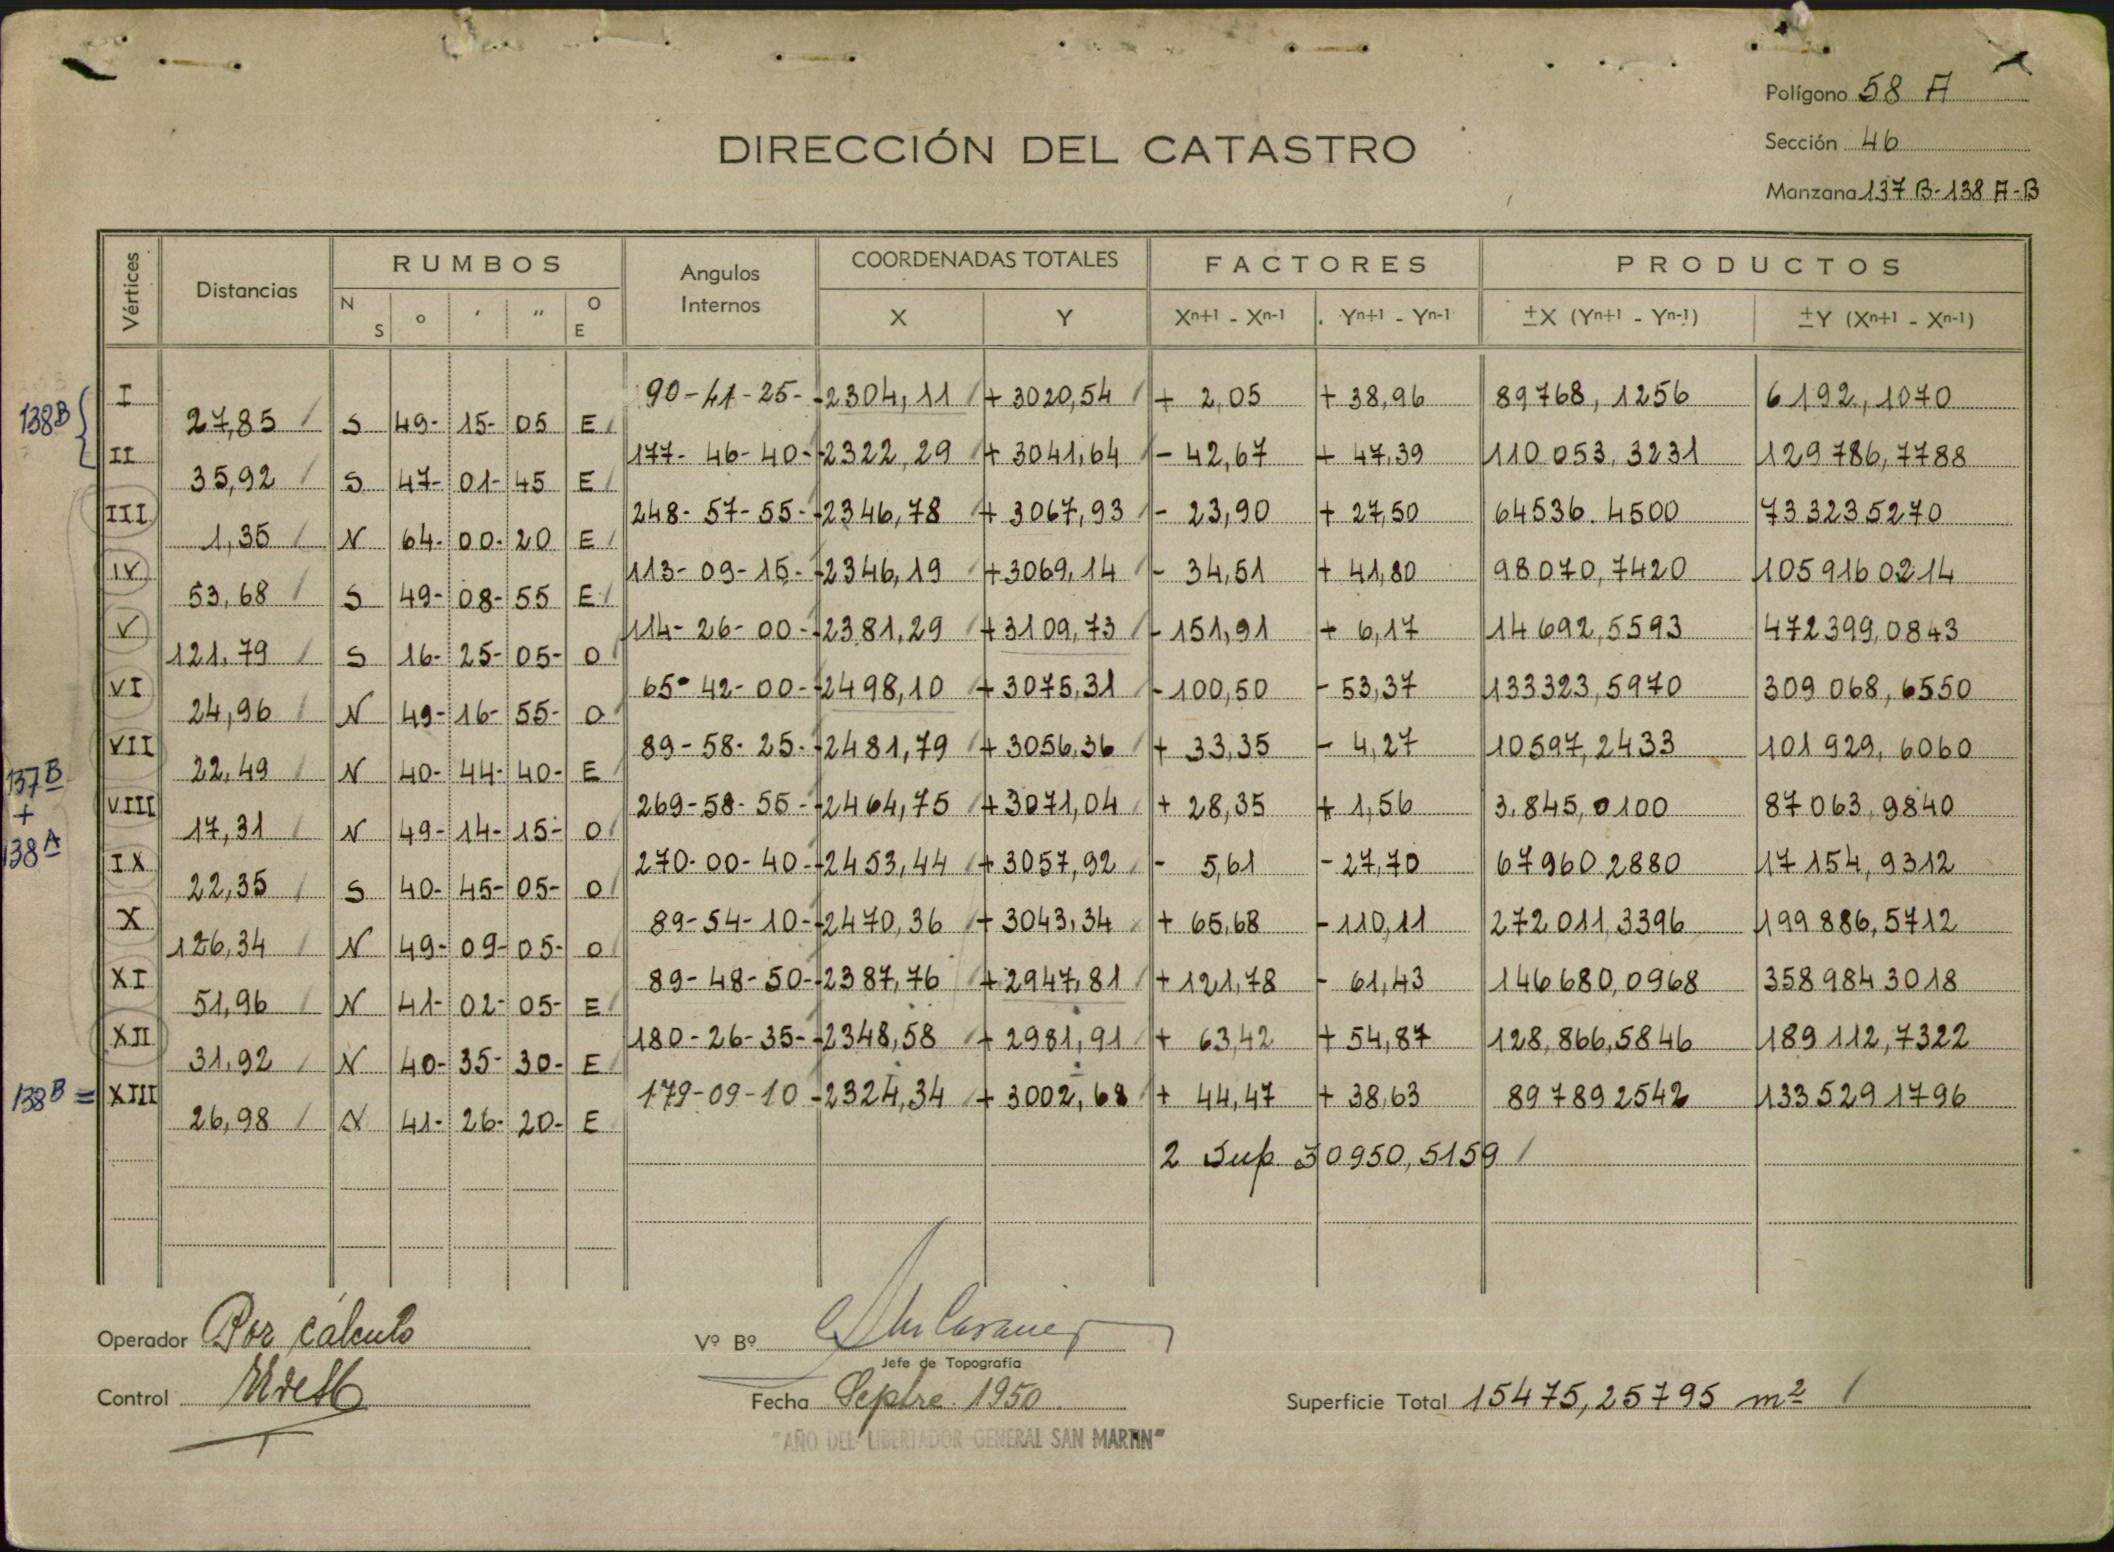 Polígono 58 A
DIRECCIÓN DEL CATASTRO
Sección 46
Manzana 137 B-138 A-B
Vértices Distancias RUMBOS Angulos Internos COORDENADAS TOTALES FACTORES PRODUCTOS
N S ° ' " O E X Y Xⁿ⁺¹ - Xⁿ⁻¹ Yⁿ⁺¹ - Yⁿ⁻¹ ±X (Yⁿ⁺¹ - Yⁿ⁻¹) ±Y (Xⁿ⁺¹ - Xⁿ⁻¹)
138B I 90-41-25- -2304,11 +3020,54 + 2,05 + 38,96 89768,1256 6192,1070
27,85 S 49- 15- 05 E
II 177-46-40- -2322,29 + 3041,64 - 42,67 + 47,39 110 053,3231 129 786,7788
35,92 S 47- 01- 45 E
III 248-57-55- -2346,78 + 3067,93 - 23,90 + 27,50 64536.4500 733235270
1,35 N 64- 00- 20 E
IV 113-09-15- -2346,19 +3069,14 - 34,51 + 41,80 98070,7420 1059160214
53,68 S 49- 08- 55 E
V 114-26-00- -2381,29 +3109,73 - 151,91 + 6,17 14692,5593 472399,0843
121,79 S 16- 25- 05- O
VI 65-42-00- -2498,10 +3075,31 - 100,50 - 53,37 133323,5970 309 068,6550
24,96 N 49- 16- 55- O
VII 89-58-25- -2481,79 + 3056,36 + 33,35 - 4,27 10597,2433 101 929,6060
22,49 N 40- 44- 40- E
137B + 138A
VIII 269-58-55- -2464,75 +3071,04 + 28,35 + 1,56 3.845,0100 87 063,9840
17,31 N 49- 14- 15- O
IX 270-00-40- -2453,44 +3057,92 - 5,61 - 27,70 67960 2880 17 154,9312
22,35 S 40- 45- 05- O
X 89-54-10- -2470,36 + 3043,34 + 65,68 - 110,11 272 011,3396 199 886,5712
126,34 N 49- 09- 05- O
XI 89-48-50- -2387,76 +2947,81 + 121,78 - 61,43 146 680,0968 358984 3018
51,96 N 41- 02- 05- E
XII 180-26-35- -2348,58 + 2981,91 + 63,42 + 54,87 128,866,5846 189 112,7322
31,92 N 40- 35- 30- E
138B = XIII 179-09-10 -2324,34 + 3002,68 + 44,47 + 38,63 897892542 1335291796
26,98 N 41- 26- 20- E
2 Sup 30950,5159
Operador Por cálculo
Vº Bº
Jefe de Topografía
Control
Fecha Sepbre 1950
Superficie Total 15475,25795 m²
"AÑO DEL LIBERTADOR GENERAL SAN MARTIN"